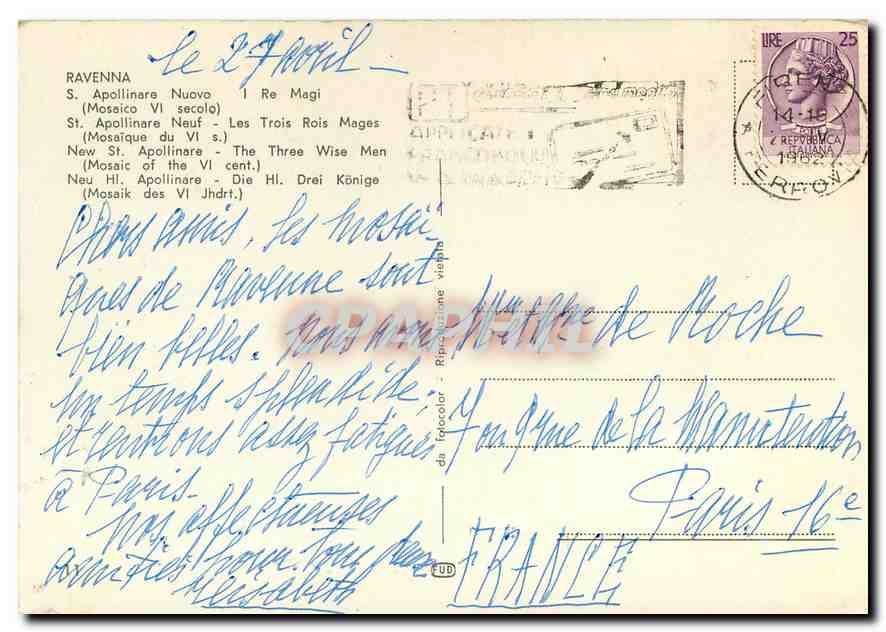 le 27 avril
RAVENNA
S. Apollinare Nuovo - I Re Magi
(Mosaico VI secolo)
St. Apollinare Neuf - Les Trois Rois Mages
(Mosaïque du VI s.)
New St. Apollinare - The Three Wise Men
(Mosaic of the VI cent.)
Neu Hl. Apollinare - Die Hl. Drei Könige
(Mosaik des VI Jhdrt.)
Chers amis, les mosaï-
ques de Ravenne sont
bien belles. Nous avons
un temps splendide,
et rentrons assez fatigués
à Paris.
Nos affectueuses
amitiés pour tous deux
Elisabeth
da fotocolor - Riproduzione vietata
FUD
LIRE 25
REPVBBLICA
ITALIANA
14-18
IV
FERROV
PT
APPLICATE
de Roche
de la Manutention
Paris 16e
FRANCE
CPAPHIL